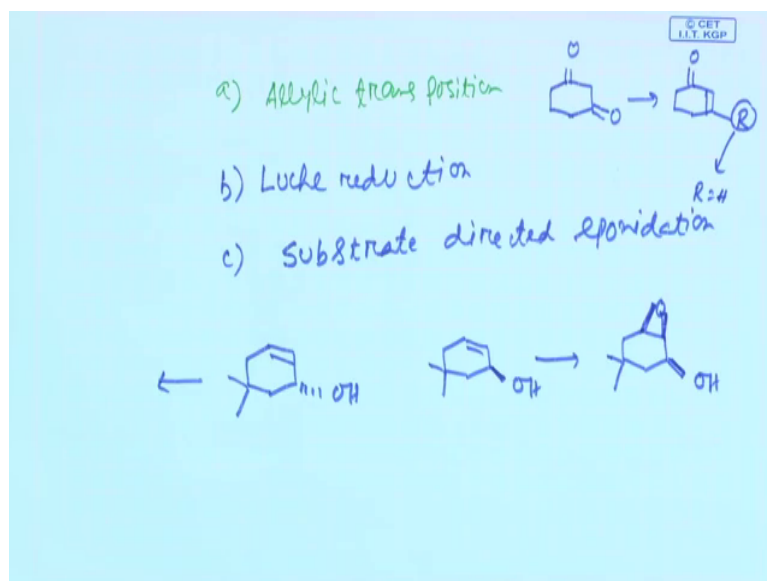 © CET
I.I.T. KGP
a) Allylic transposition
O
O
O
R
R=H
b) Luche reduction
c) Substrate directed eponidation
OH
OH
O
OH